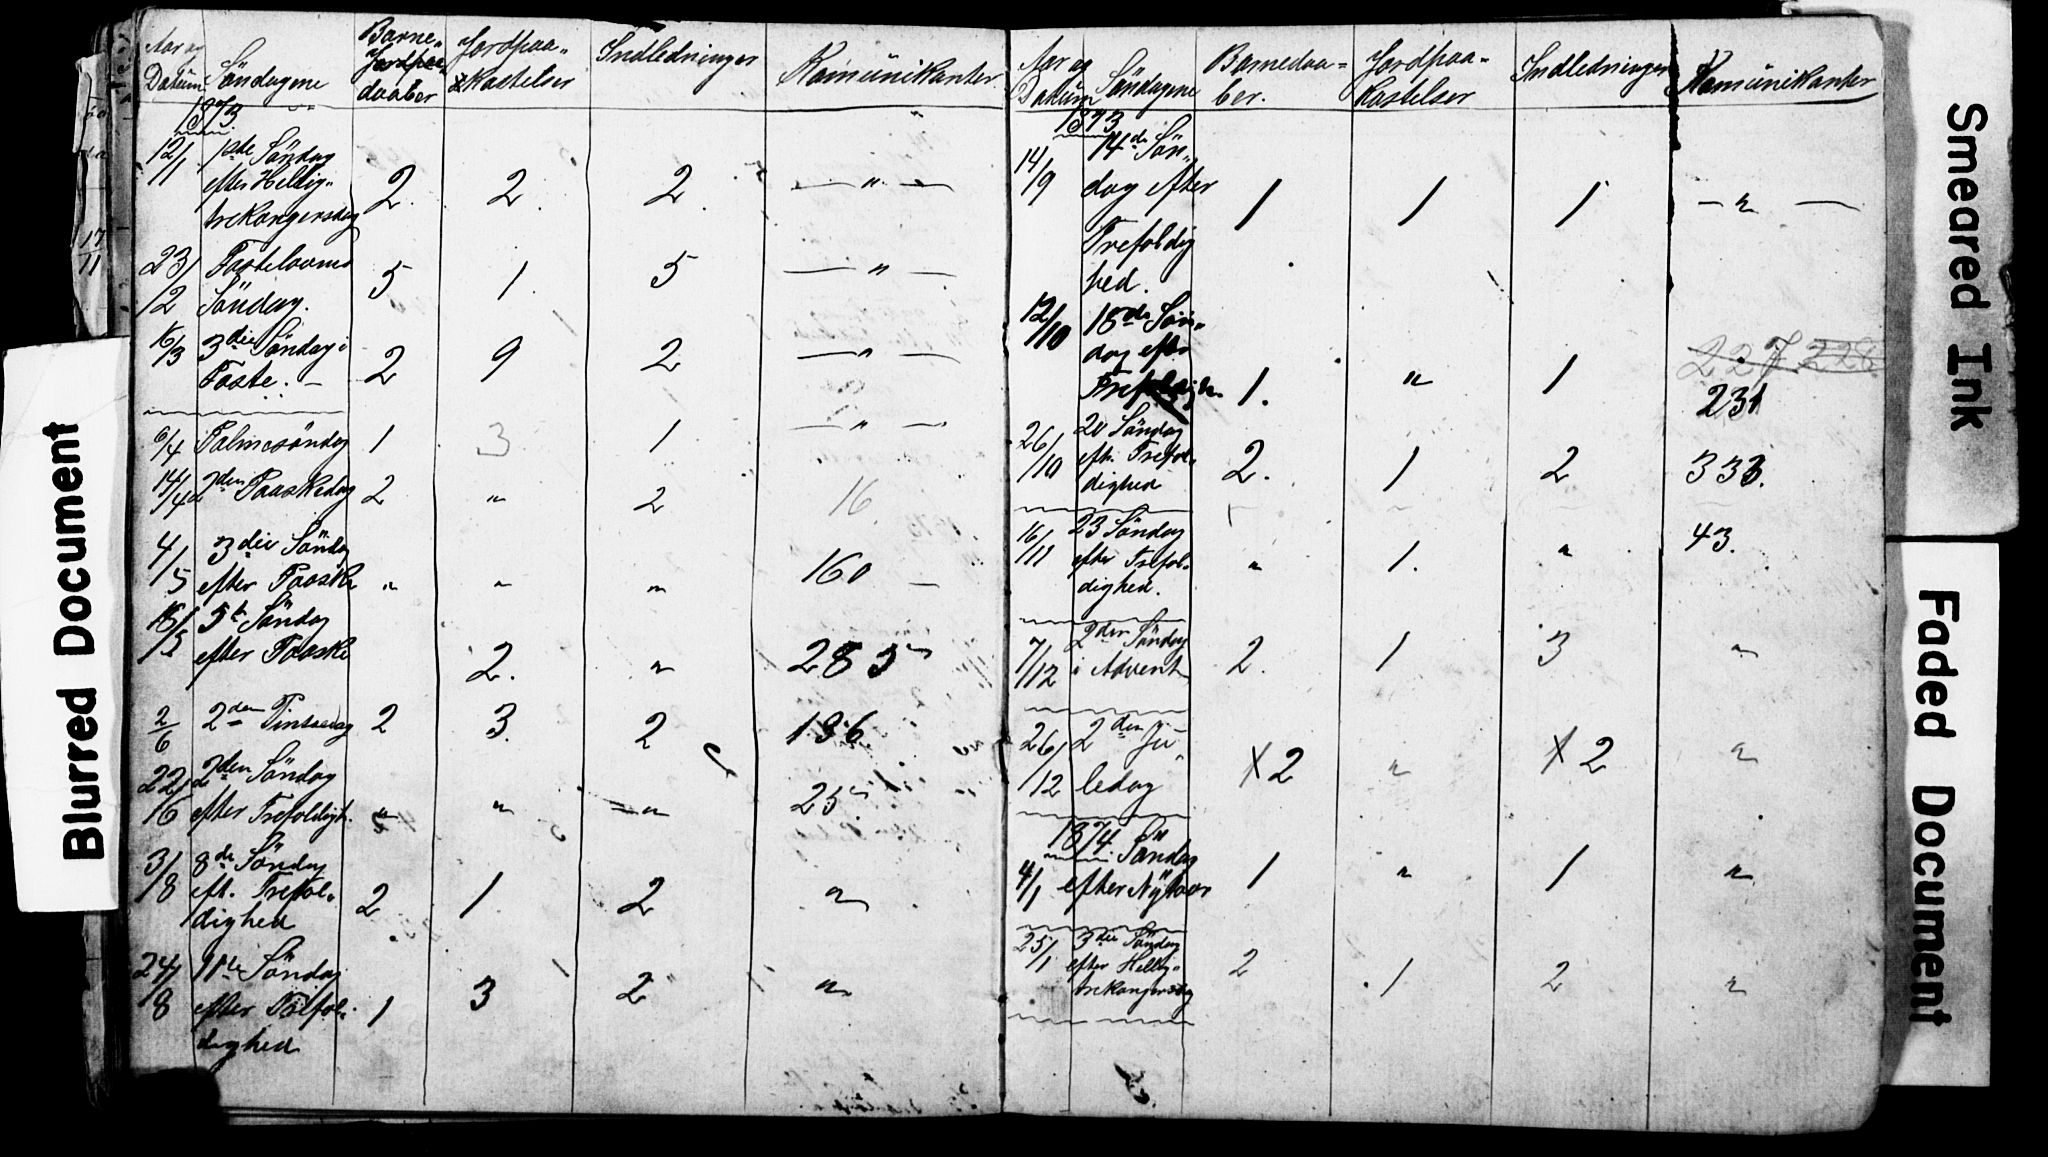 Aar og Datum Söndagene Barne-daaber Jordpaa-kastelser Indledninger Komünikanter
1873
12/1 1ste Söndag
efter Hellig-
trekongersdag 2. 2. 2. — " —
23/2 Fastelavns
Söndag. 5 1. 5 — " —
16/3 3die Söndag i
Faste. — 2 9 2 — " —
6/4 Palmesöndag 1 3 1. — " —
14/4 2den Paaskedag 2 " 2 16
4/5 3die Söndag
efter Paaske " " " 160 —
18/5 5te Söndag
efter Paaske 2. " 285
2/6 2den Pintsedag 2 3. 2 186
22/6 2den Söndag
efter Trefoldigh. " " — " 25
3/8 8de Söndag
eft. Trefol-
dighed 2 1. 2 "
24/8 11te Söndag
efter Trefol-
dighed 1 3 2 "
Aar og Datum Söndagene Barnedaa-
ber. Jordpaa-
kastelser Indledninger Komünikanter
1873
14/9 14de Sön-
dag efter
Trefoldig
hed. 1 1 1 — " —
12/10 18de Sön-
dag eftr
1. " 1 227 228
231
26/10 20 Söndag
eft. Trefol-
dighed 2. 1 2 333.
16/11 23 Söndag
efter Trefol-
dighed. " 1. " 43.
7/12 2den Söndag
i Advent 2. 1 3 "
26/12 2den Jü-
ledag X2 " X2 "
1874
4/1 Söndag
efter Nÿtaar 1 " 1 "
25/1 3die Söndag
efter Hellig-
trekongersdag 2 1 2 "
17
11
Blurred Document
Smeared Ink
Faded Document